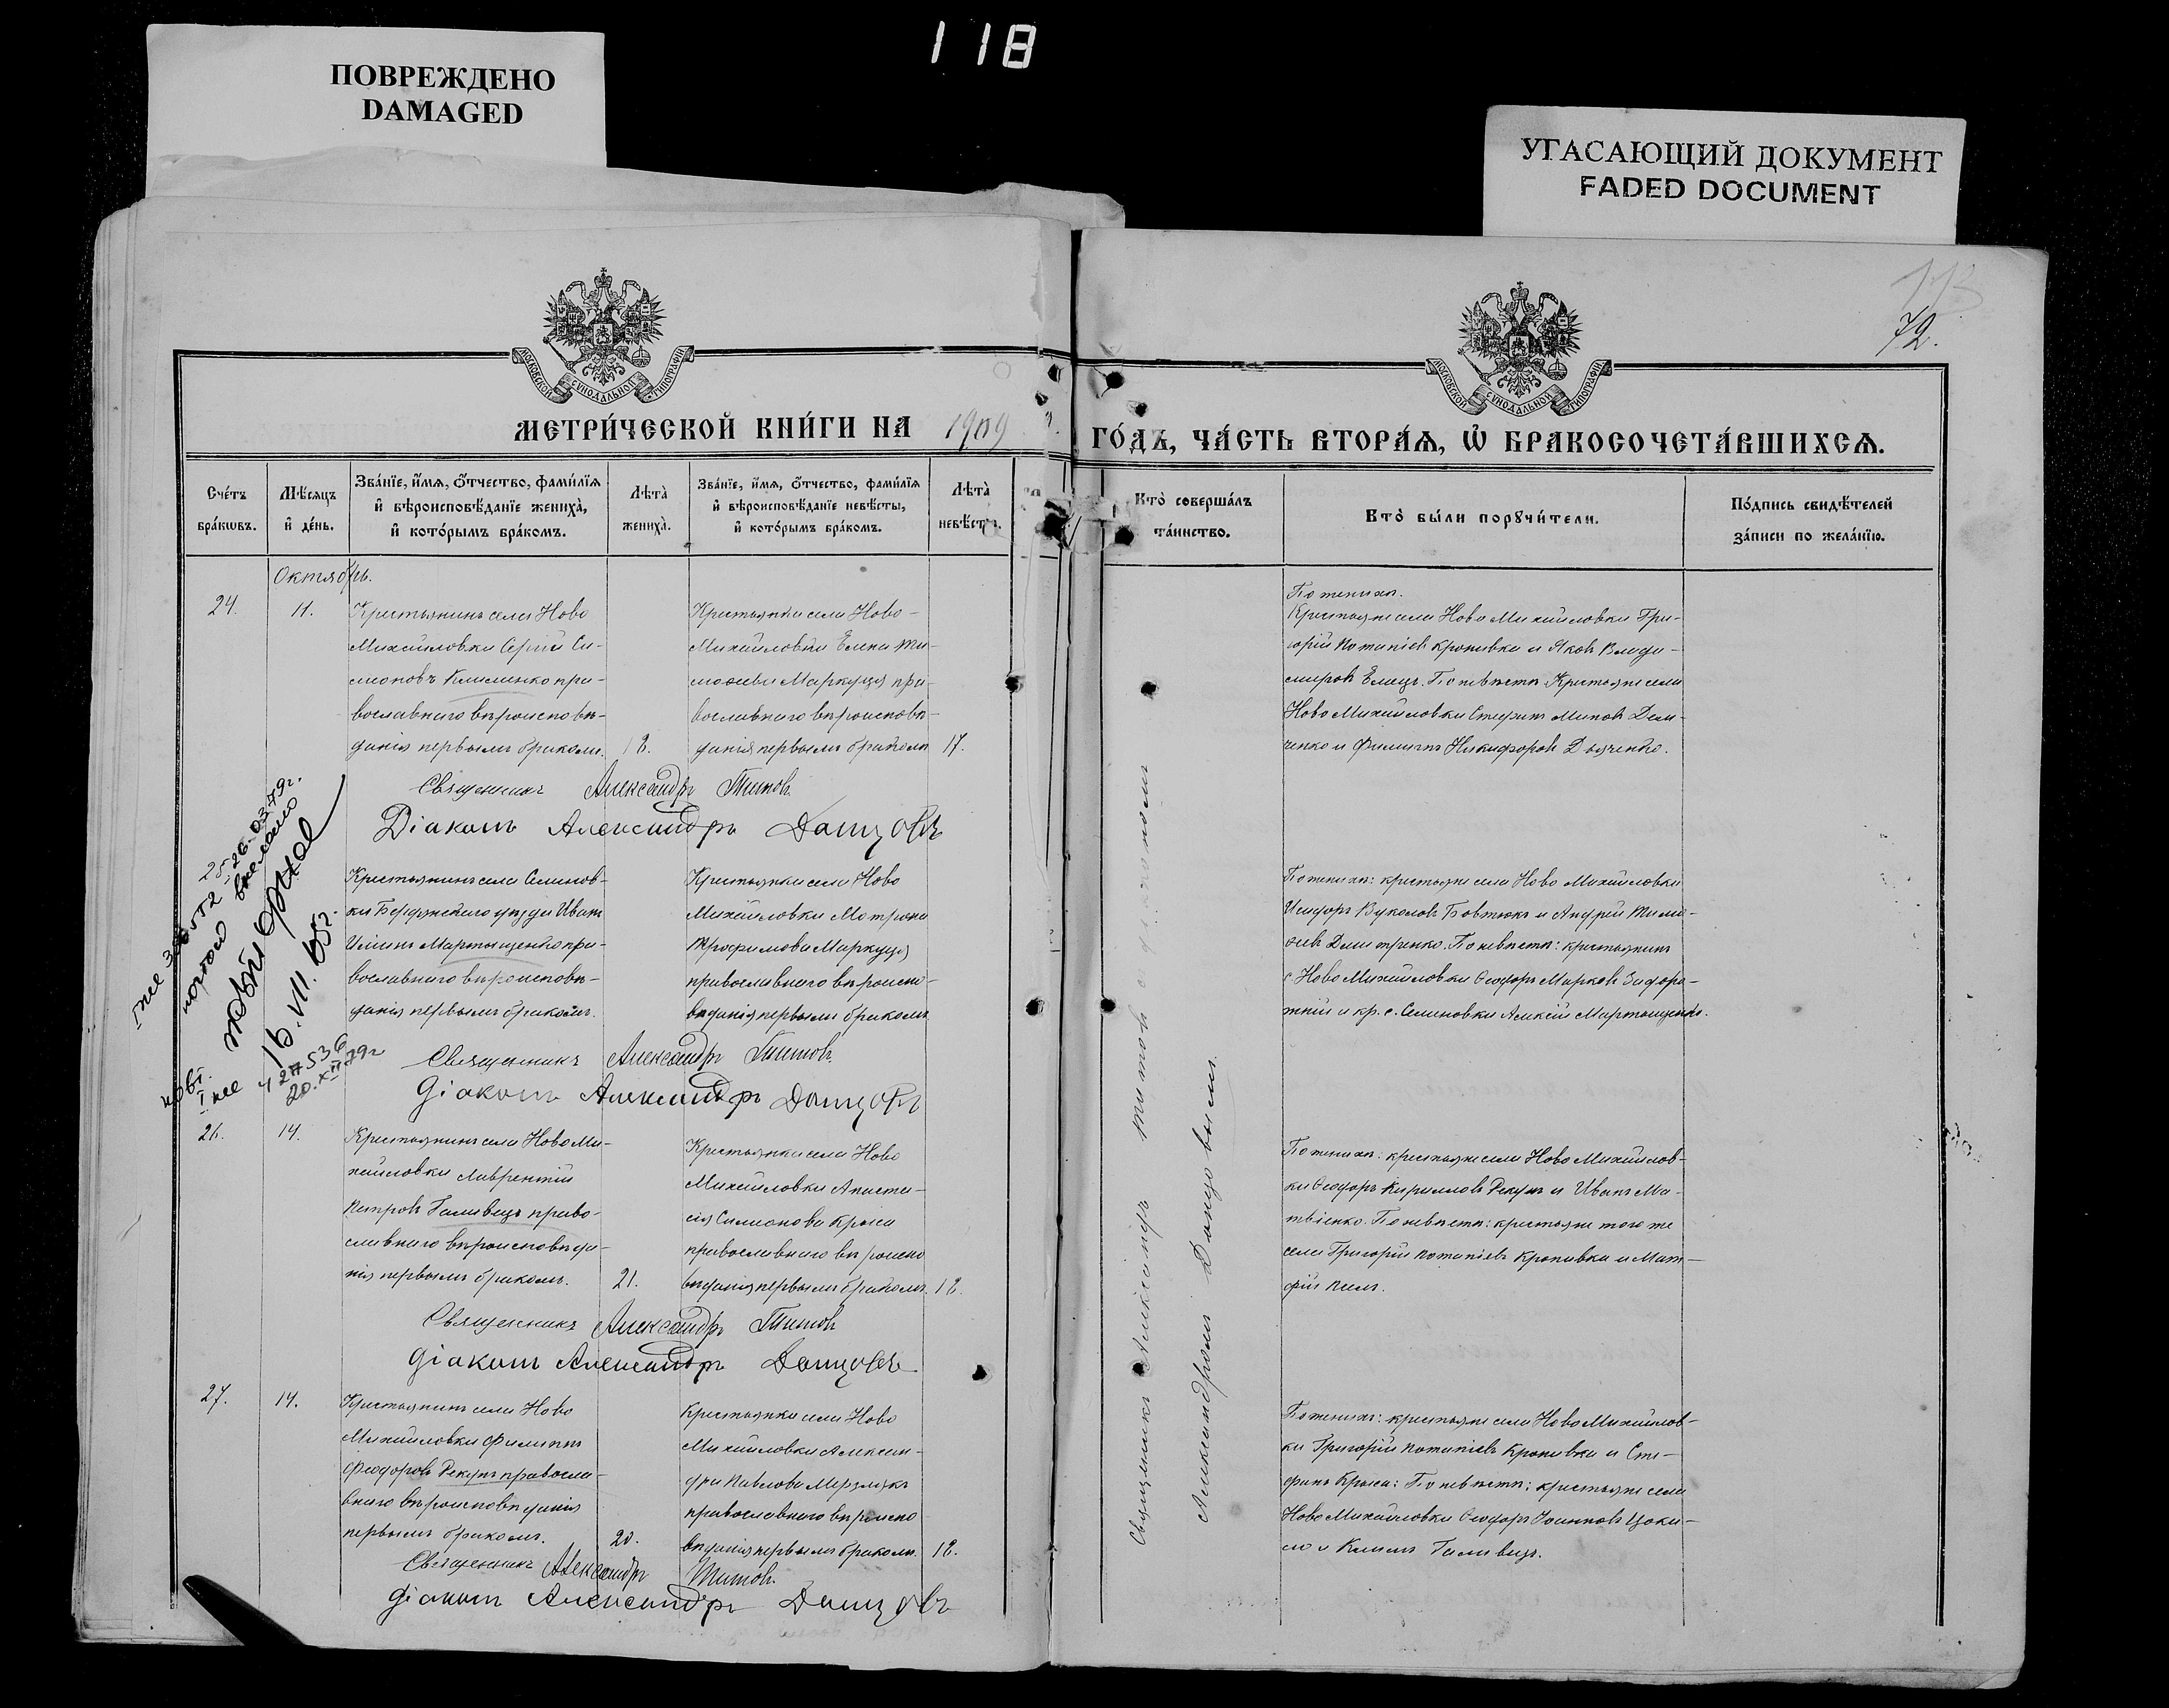 118
ПОВРЕЖДЕНО
DAMAGED
УГАСАЮЩИЙ ДОКУМЕНТ
FADED DOCUMENT
72.
МОСКОВСКОЙ СѴНОДАЛЬНОЙ ТИПОГРАФІИ
МОСКОВСКОЙ СѴНОДАЛЬНОЙ ТИПОГРАФІИ
МЕТРИ́ЧЕСКОЙ КНИ́ГИ НА 1909
ГО́ДЪ, ЧА́СТЬ ВТОРА́Ѧ, Ѽ БРАКОСОЧЕТА́ВШИХСѦ.
Сче́тъ бра́кѡвъ.
Мѣ́сяцъ и҆ де́нь.
Зва́нїе, и҆́мѧ, ѻ҆́тчество, фами́лїѧ
и҆ вѣроисповѣ́данїе жениха̀,
и҆ кото́рымъ бра́комъ.
Лѣта̀ жениха̀.
Зва́нїе, и҆́мѧ, ѻ҆́тчество, фами́лїѧ
и҆ вѣроисповѣ́данїе невѣ́сты,
и҆ кото́рымъ бра́комъ.
Лѣта̀
Кто̀ соверша́лъ
та́инство.
Кто̀ бы́ли порꙋчи́тели.
По́дпись свидѣ́телей
за́писи по жела́нїю.
Октябрь.
24.
11.
Крестьянинъ села Ново
Михайловки Сергій Си-
моновъ Клименко пра-
вославнаго вѣроисповѣ-
данія первымъ бракомъ.
18.
Крестьянка села Ново-
Михайловки Елена Ти-
моѳеева Маркуца пра-
вославнаго вѣроисповѣ-
данія первымъ бракомъ
17.
По женихѣ.
Крестьяне села Ново Михайловки Гри-
горій Потапіевъ Кропивка и Яковъ Влади-
міровъ Елецъ. По невѣстѣ Крестьяне села
Ново Михайловки Стефанъ Миновъ Дем-
ченко и Филиппъ Никифоровъ Дьяченко.
Священникъ Александръ Титовъ.
Діаконъ Александръ Донцовъ
Крестьянинъ села Семенов-
ки Бердянскаго уѣзда Иванъ
Ильинъ Мартыщенко пра-
вославнаго вѣроисповѣ-
данія первымъ бракомъ.
Крестьянка села Ново
Михайловки Матрона
Трофимова Маркуца
православнаго вѣроиспо-
вѣданія первымъ бракомъ
По женихѣ: крестьяне села Ново Михайловки
Исидоръ Вуколовъ Бовтюкъ и Андрей Тимо-
ѳеевъ Дмитренко. По невѣстѣ: крестьянинъ
с. Ново Михайловки Ѳеодоръ Марковъ Задоро-
жній и кр. с. Семеновки Алексій Мартыщенко.
16.VII.65г.
427536
20.XII 79г
Священникъ Александръ Титовъ.
Діаконъ Александръ Донцовъ
26.
14.
Крестьянинъ села Ново Ми-
хайловки Лаврентій
Петровъ Галивецъ право-
славнаго вѣроисповѣда-
нія первымъ бракомъ.
21.
Крестьянка села Ново
Михайловки Анаста-
сія Симонова Крыса
православнаго вѣроиспо
вѣданія первымъ бракомъ.
18.
По женихѣ: крестьяне села Ново Михайлов-
ки Ѳеодоръ Кирилловъ Рекунъ и Иванъ Ма-
твіенко. По невѣстѣ: крестьяне того же
села Григорій Потапіевъ Кропивка и Мат-
фій Пели.
Священникъ Александръ Титовъ
Діаконъ Александръ Донцовъ
27.
14.
Крестьянинъ села Ново
Михайловки Филиппъ
Ѳеодоровъ Рекунъ правосла-
внаго вѣроисповѣданія
первымъ бракомъ.
20.
Крестьянка села Ново
Михайловки Алексан-
дра Павлова Мерзлякъ
православнаго вѣроиспо
вѣданія первымъ бракомъ.
18.
По женихѣ: крестьяне села Ново Михайлов-
ки Григорій Потапіевъ Кропивка и Сте-
фанъ Крыса: По невѣстѣ: крестьяне села
Ново Михайловки Ѳеодоръ Іоанновъ Цоки-
ло и Климъ Галивецъ.
Священникъ Александръ Титовъ.
Діаконъ Александръ Донцовъ
Священникъ Александръ Титовъ съ діакономъ
Александромъ Донцовымъ.